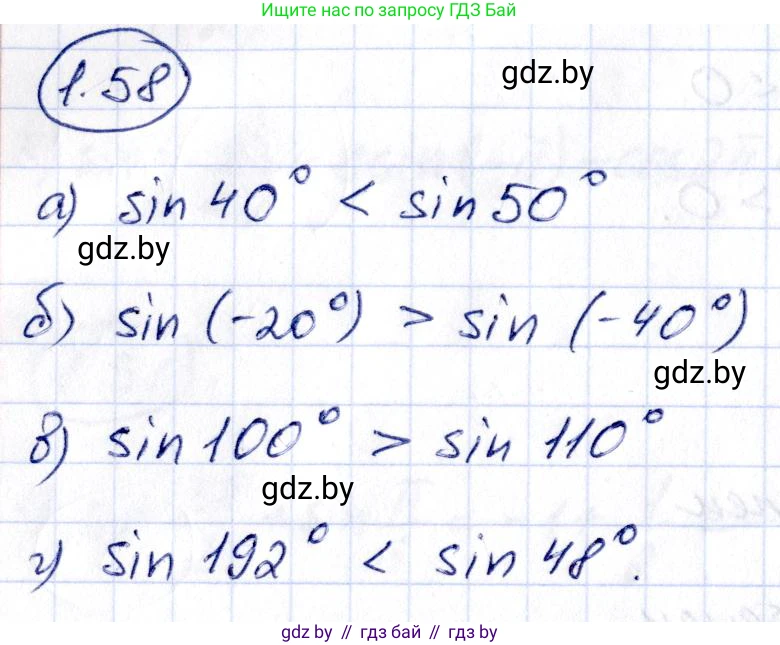 Ищите нас по запросу ГДЗ Бай
1.58
gdz.by
а) sin 40° < sin 50°
gdz.by
б) sin (-20°) > sin (-40°)
gdz.by
в) sin 100° > sin 110°
gdz.by
г) sin 192° < sin 48°.
gdz by // гдз бай // гдз by